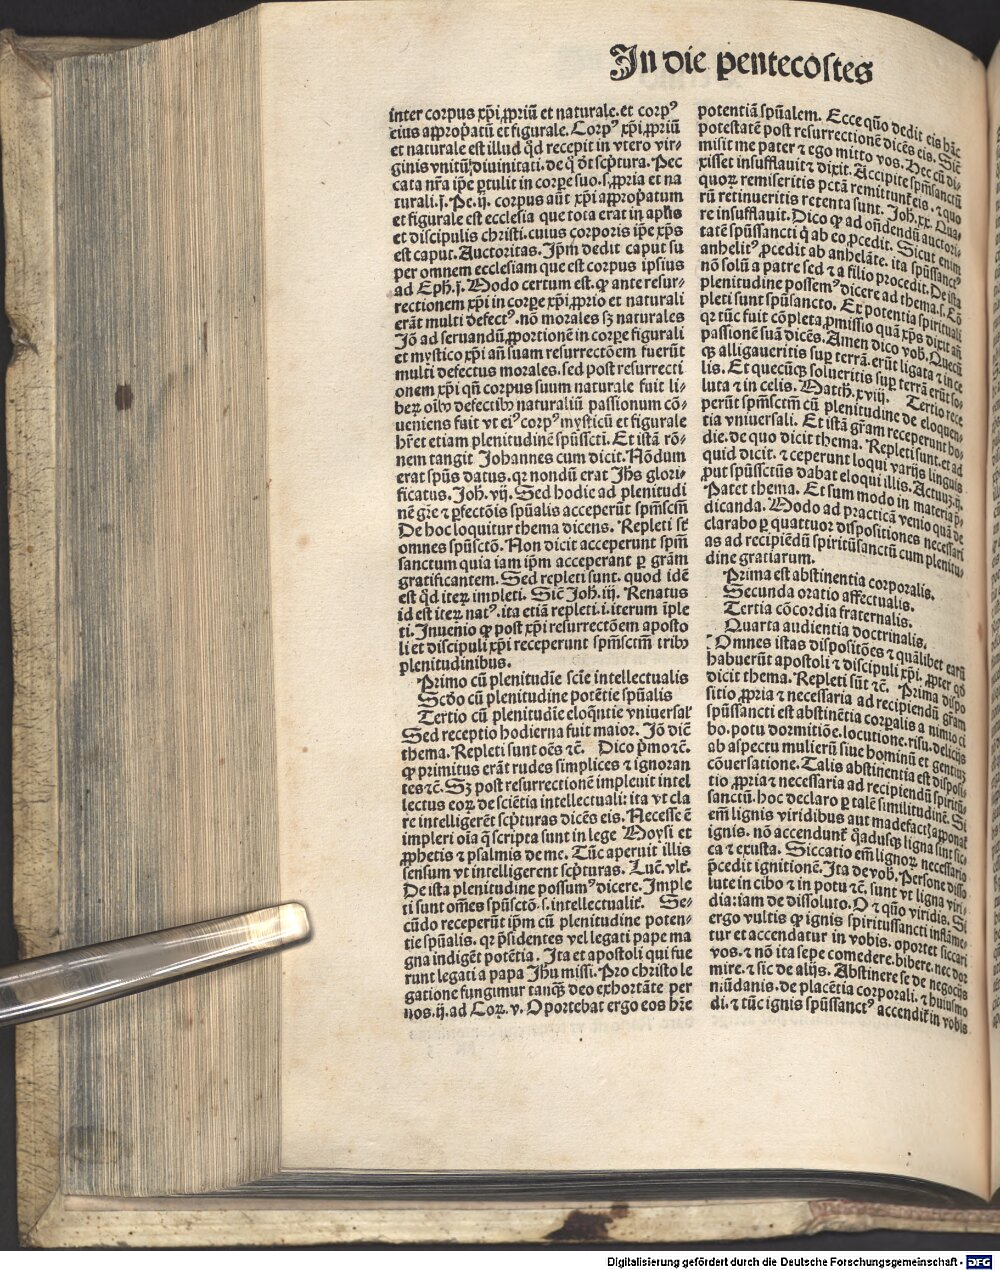 In die pentecostes
inter corpus xp̄i ꝓpriū et naturale. et corpꝰ
eius appropatū et figurale. Corpꝰ xp̄i ꝓpriū
et naturale est illud qd̄ recepit in vtero vir-
ginis vnitū diuinitati. de q̄ dt̄ scpt̄ura. Pec
cata nr̄a ip̄e ꝑtulit in corpe suo. s. ꝓpria et na
turali. j. Pe. ij. corpus aūt xp̄i appropatum
et figurale est ecclesia que tota erat in apl̄is
et discipulis christi. cuius corporis ip̄e xp̄s
est caput. Auctoritas. Ip̄m dedit caput su
per omnem ecclesiam que est corpus ipsius
ad Eph. j. Modo certum est. ꝙ ante resur-
rectionem xp̄i in corpe xp̄i ꝓprio et naturali
erāt multi defectꝰ. nō morales sꝫ naturales
Iō ad seruandū ꝓportionē in corpe figurali
et mystico xp̄i an̄ suam resurrectōem fuerūt
multi defectus morales. sed post resurrecti
onem xp̄i qn̄ corpus suum naturale fuit li-
beꝝ oībꝰ defectibꝰ naturaliū passionum cō-
ueniens fuit vt eiꝰ corpꝰ mysticū et figurale
hr̄et etiam plenitudinē spūsscti. Et istā rō-
nem tangit Johannes cum dicit. Nōdum
erat spūs datus. qꝛ nondū erat Jhs glori-
ficatus. Joh. vij. Sed hodie ad plenitudi
nē gr̄e ⁊ ꝑfectōis spūalis acceperūt spm̄scm̄
De hoc loquitur thema dicens. Repleti st̄
omnes spūsctō. Non dicit acceperunt spm̄
sanctum quia iam ip̄m acceperant ꝑ gram̄
gratificantem. Sed repleti sunt. quod idē
est qd̄ iteꝝ impleti. Sic̄ Joh. iij. Renatus
id est iteꝝ natꝰ. ita etiā repleti. i. iterum īple
ti. Inuenio ꝙ post xp̄i resurrectōem aposto
li et discipuli xp̄i receperunt spm̄sctm̄ tribꝰ
plenitudinibus.
Primo cū plenitudīe scīe intellectualis
Scd̄o cū plenitudine potētie spūalis
Tertio cū plenitudīe eloq̄ntie vniuersal̓
Sed receptio hodierna fuit maior. Iō diē
thema. Repleti sunt oēs ⁊c̄. Dico pmo ⁊c̄.
ꝙ primitus erāt rudes simplices ⁊ ignoran
tes ⁊c̄. Sꝫ post resurrectionē impleuit intel
lectus eoꝝ de sciētia intellectuali: ita vt cla
re intelligerēt scpt̄uras dicēs eis. Necesse ē
impleri oīa q̄ scripta sunt in lege Moysi et
ꝓphetis ⁊ psalmis de me. Tūc aperuit illis
sensum vt intelligerent scpt̄uras. Luc̄. vlt̄.
De ista plenitudine possumꝰ dicere. Imple
ti sunt oēs spūsctō. s. intellectualit̄. Se-
cūdo receperūt ip̄m cū plenitudine poten-
tie spūalis. qꝛ psidentes vel legati pape ma
gna indigēt potētia. Ita et apostoli qui fue
runt legati a papa Jhū missi. Pro christo le
gatione fungimur tanqꝫ deo exhortāte per
nos. ij. ad Coꝝ. v. Oportebat ergo eos hr̄e
potentiā spūalem. Ecce quō dedit eis hāc
potestatē post resurrectionē dicēs eis. Sic̄
misit me pater ⁊ ego mitto vos. Hec cū di-
xisset insufflauit ⁊ dixit. Accipite spm̄sanctū
quoꝝ remiseritis pctā remittunt̄ eis. ⁊ quo
rū retinueritis retenta sunt. Joh. xx. Qua-
re insufflauit. Dico ꝙ ad on̄dendū auctori-
tatē spūssancti q̄ ab eo ꝓcedit. Sicut enim
anhelitꝰ ꝓcedit ab anhelāte. ita spūssanctꝰ
nō solū a patre sed ⁊ a filio procedit. De ista
plenitudine possemꝰ dicere ad thema. s. Eō
pleti sunt spūsancto. Ex potentia spirituali
qꝛ tūc fuit cōpleta ꝓmissio quā xp̄s dixit an̄
passionē suā dicēs. Amen dico vob̄. Quecū
qꝫ alligaueritis sup terrā. erūt ligata ⁊ in ce
lis. Et quecūqꝫ solueritis sup terrā erūt so-
luta ⁊ in celis. Matth̄. xviij. Tertio rece
perūt spm̄sctm̄ cū plenitudine de eloquen-
tia vniuersali. Et istā gram̄ receperunt ho-
die. de quo dicit thema. Repleti sunt. et ad
quid dicit. ⁊ ceperunt loqui varijs linguis
ꝓut spūssctūs dabat eloqui illis. Actuū. ij.
Patet thema. Et sum modo in materia p̄-
dicanda. Modo ad practicā venio quā de
clarabo ꝑ quattuor dispositiones necessari
as ad recipiēdū spiritūsanctū cum plenitu-
dine gratiarum.
Prima est abstinentia corporalis.
Secunda oratio affectualis.
Tertia cōcordia fraternalis.
Quarta audientia doctrinalis.
Omnes istas dispositōes ⁊ quālibet earū
habuerūt apostoli ⁊ discipuli xp̄i. ꝓpter qd̄
dicit thema. Repleti sūt ⁊c̄. Prima dispo
sitio ꝓpria ⁊ necessaria ad recipiendū gram̄
spūssancti est abstinētia corpalis a nimio ci
bo. potu dormitiōe. locutione. risu. delicijs
ab aspectu mulierū siue hominū et gentiuꝫ
cōuersatione. Talis abstinentia est disposi-
tio ꝓpria ⁊ necessaria ad recipiendū spiritū-
sanctū. hoc declaro ꝑ talē similitudinē. Si
em̄ lignis viridibus aut madefactꝭ apponat̄
ignis. nō accendunt̄ qͣdusqꝫ ligna sint sic-
ca ⁊ exusta. Siccatio em̄ lignoꝝ necessario
p̄cedit ignitionē. Ita de vob̄. Persone disso
lute in cibo ⁊ in potu ⁊c̄. sunt vt ligna viri-
dia: iam de dissoluto. O ⁊ quō viridis. Si
ergo vultis ꝙ ignis spiritussancti inflāme-
tur et accendatur in vobis. oportet siccari
vos. ⁊ nō ita sepe comedere. bibere. nec dor
mire. ⁊ sic de alijs. Abstinere se de negocijs
mūdanis. de placētia corporali. ⁊ huiusmo
di. ⁊ tūc ignis spūssanctꝰ accendit̄ in vobis
Digitalisierung gefördert durch die Deutsche Forschungsgemeinschaft - DFG